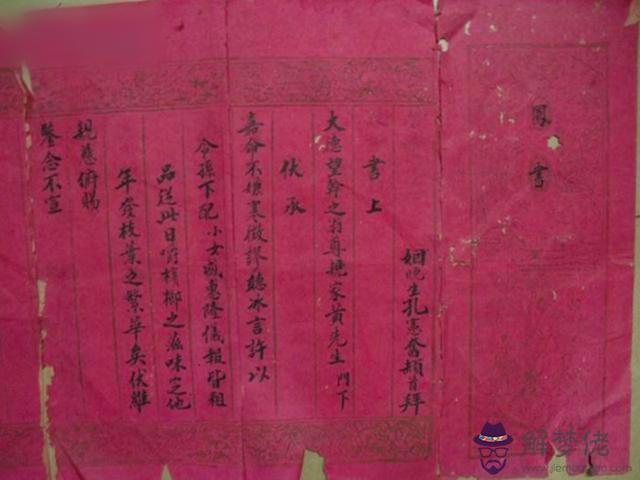 鳳書
姻晚生孔憲奮頓首拜
書上
大悳望幹之翁尊家黃先生門下
伏承
嘉命不嫌寒微謬聽冰言許以
令孫下配小女感惠隆儀報皆粗
品送此日嚼檳榔之滋味定他
年發枝葉之繁華矣伏維
親慈俯賜
鑒念不宣
解梦佬